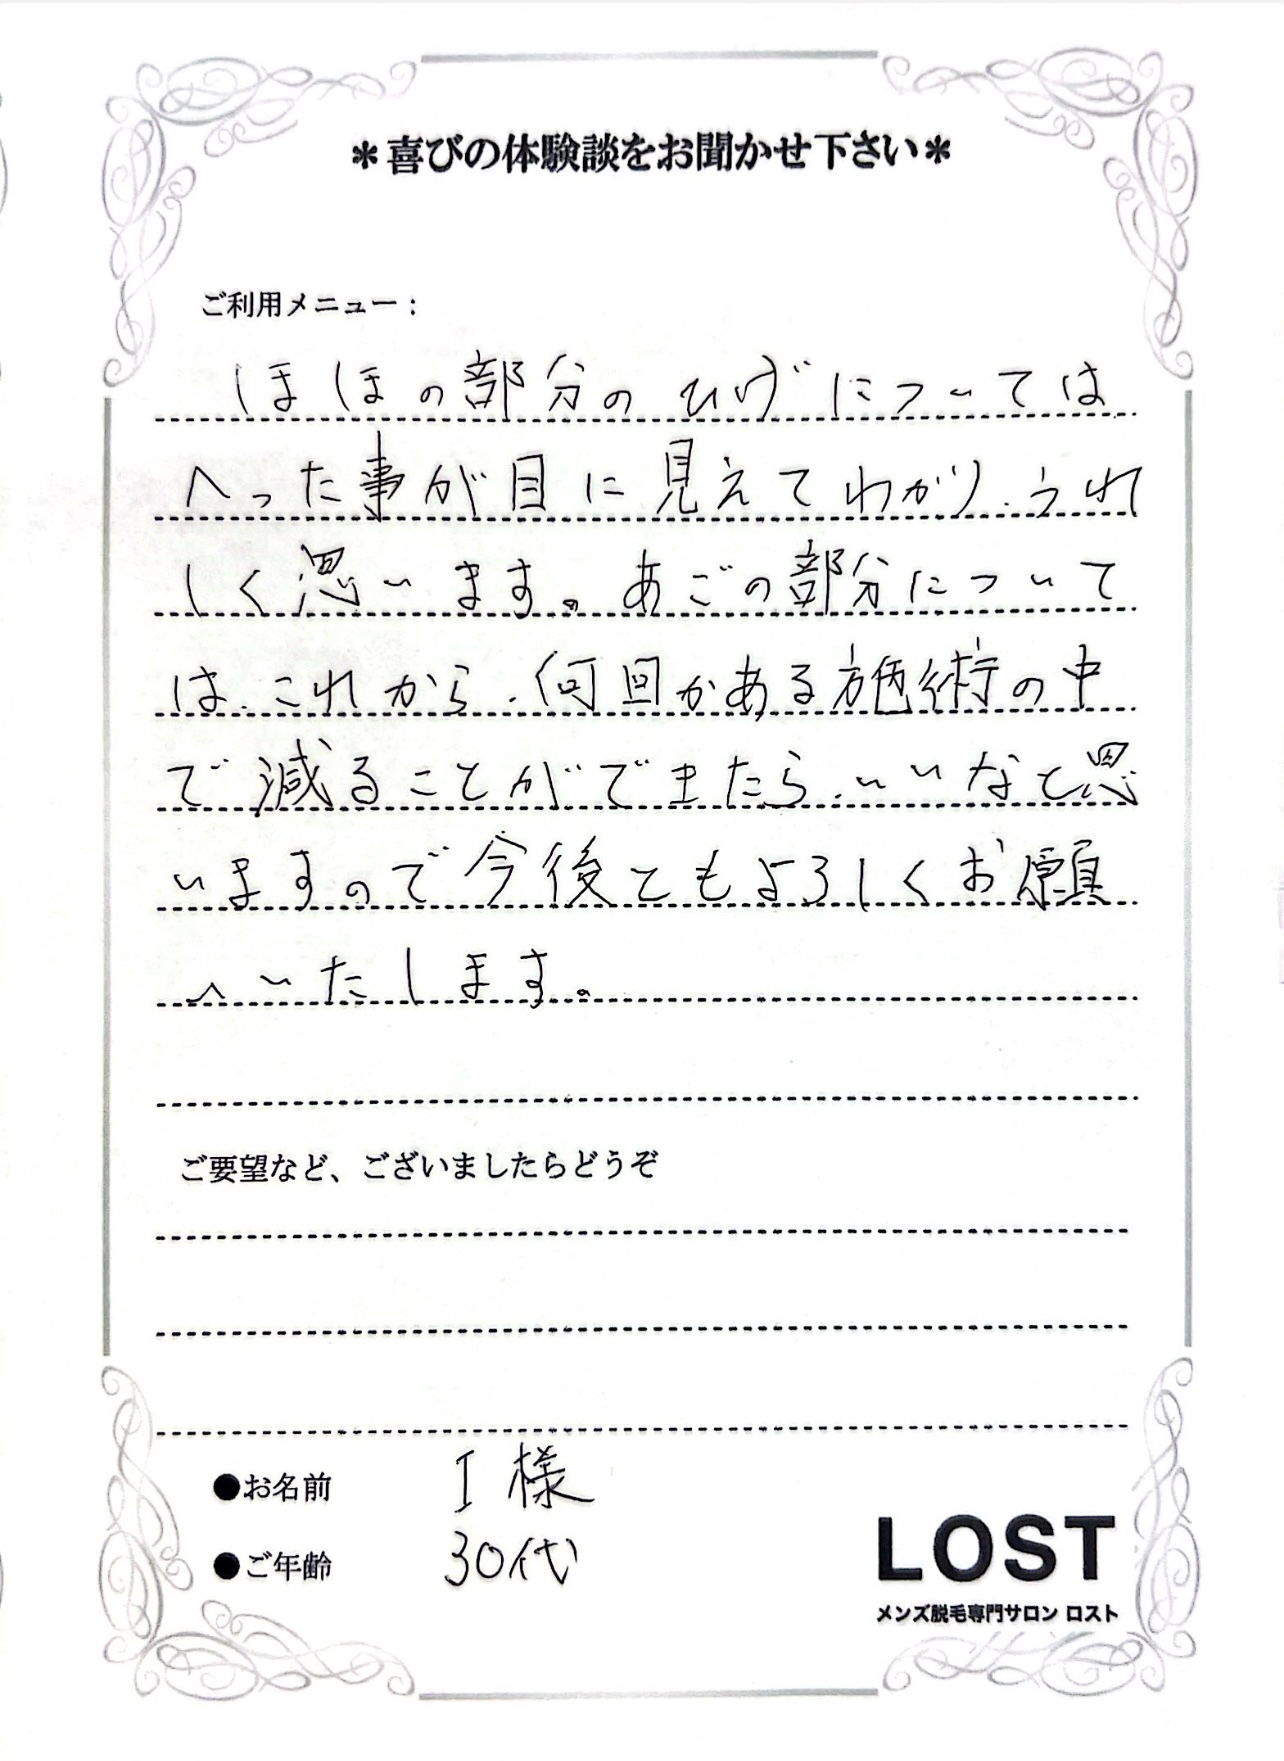 ＊喜びの体験談をお聞かせ下さい＊
ご利用メニュー：
ほほの部分のひげについては
へった事が目に見えてわかり、うれ
しく思います。あごの部分について
は、これから、何回かある施術の中
で減ることができたら、いいなと思
いますので今後ともよろしくお願
いいたします。
ご要望など、ございましたらどうぞ
●お名前 I様
●ご年齢 30代
LOST
メンズ脱毛専門サロン ロスト